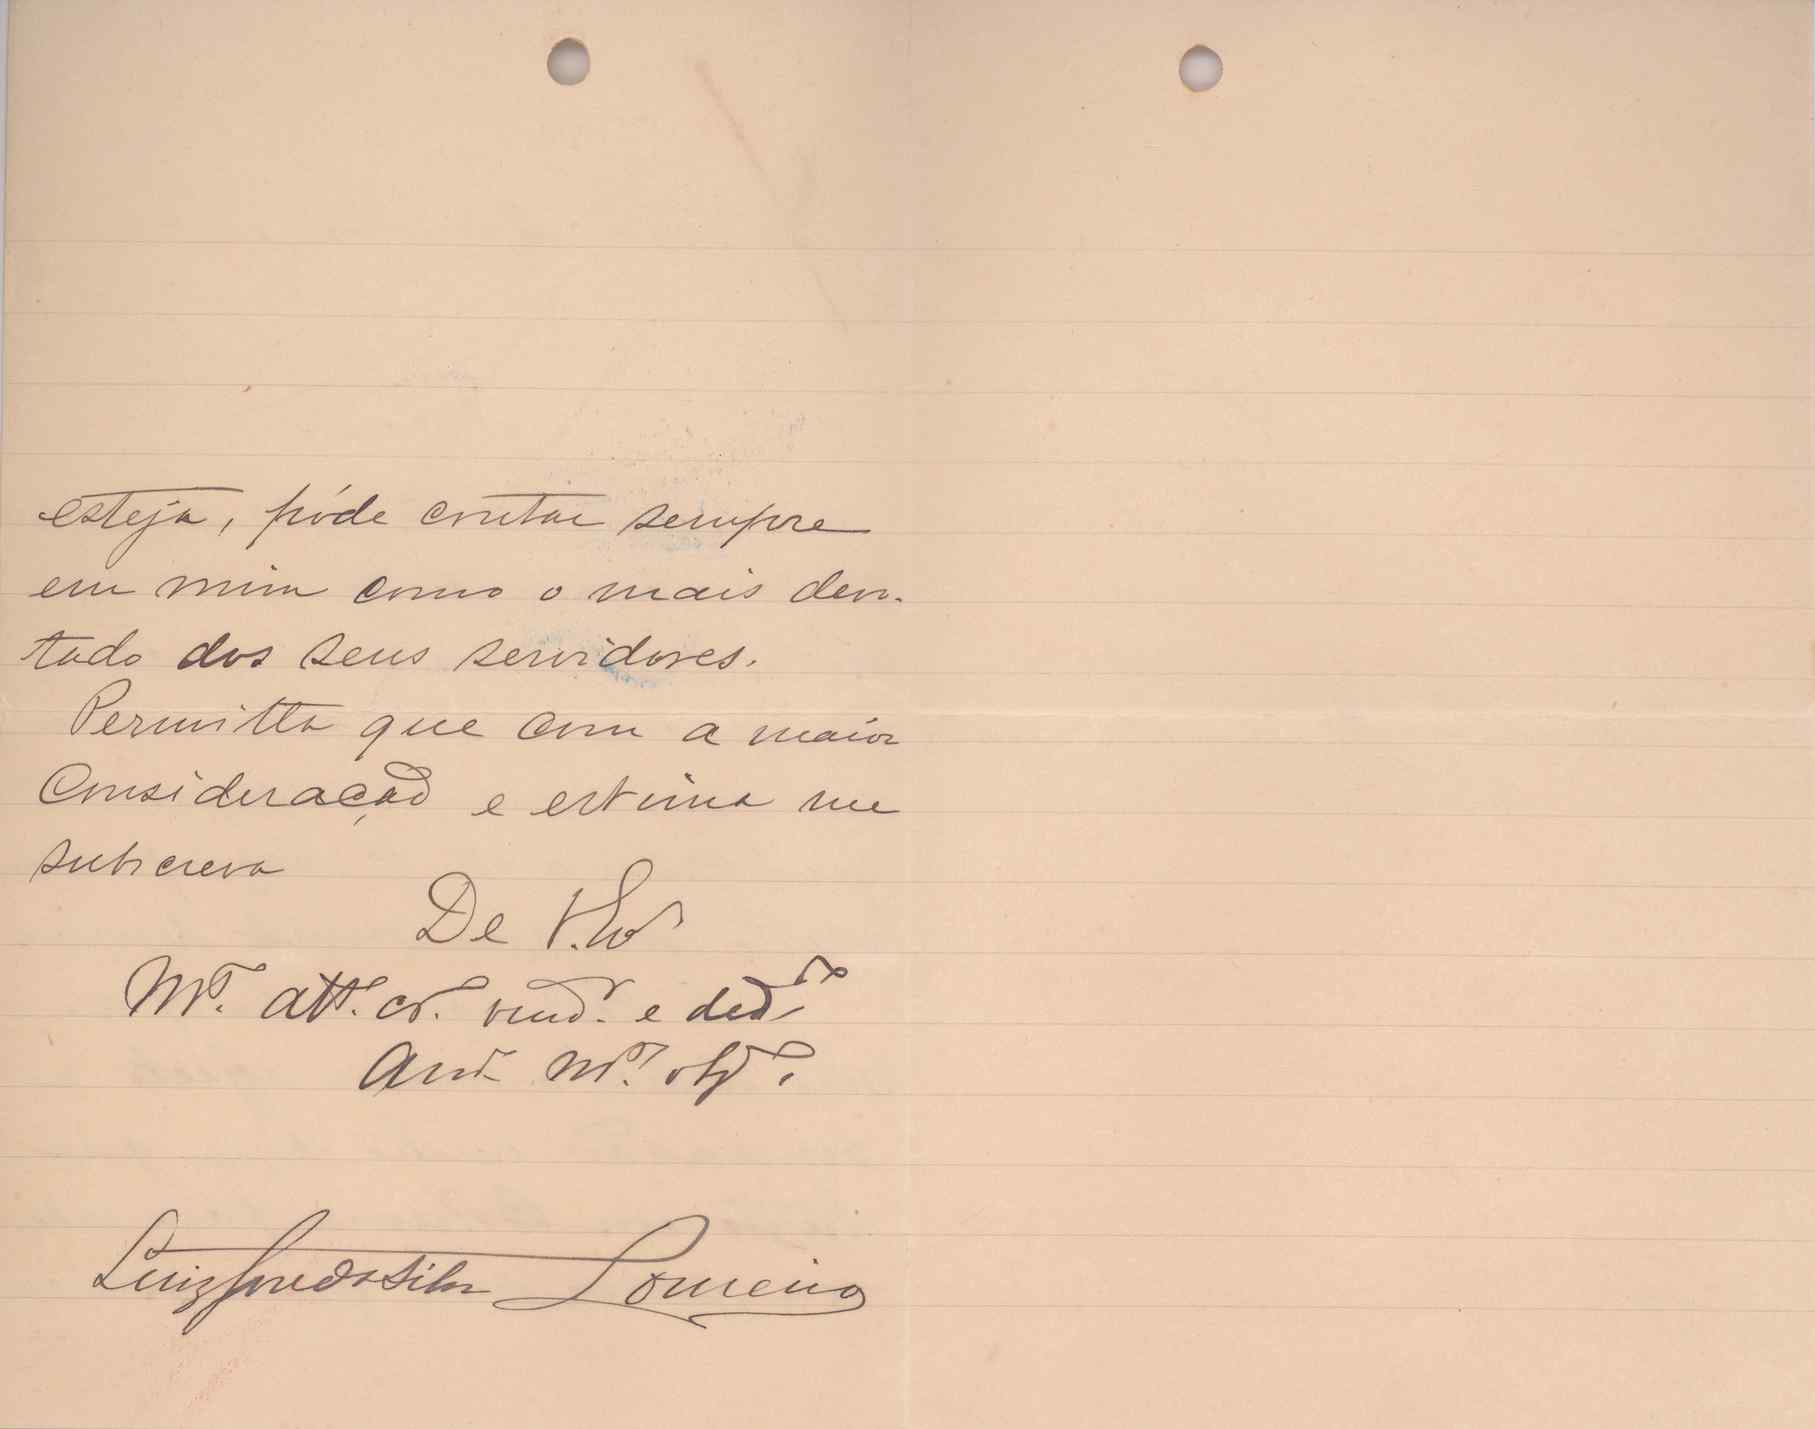 esteja, póde contar sempre
em mim como o mais devo-
tado dos seus servidores.
Permitta que com a maior
Consideração e estima me
subscreva
De V. Exª
Mto. attº. crº. venor. e dedº
Amº Mtº. obgº.
Luiz José da Silva Loureiro